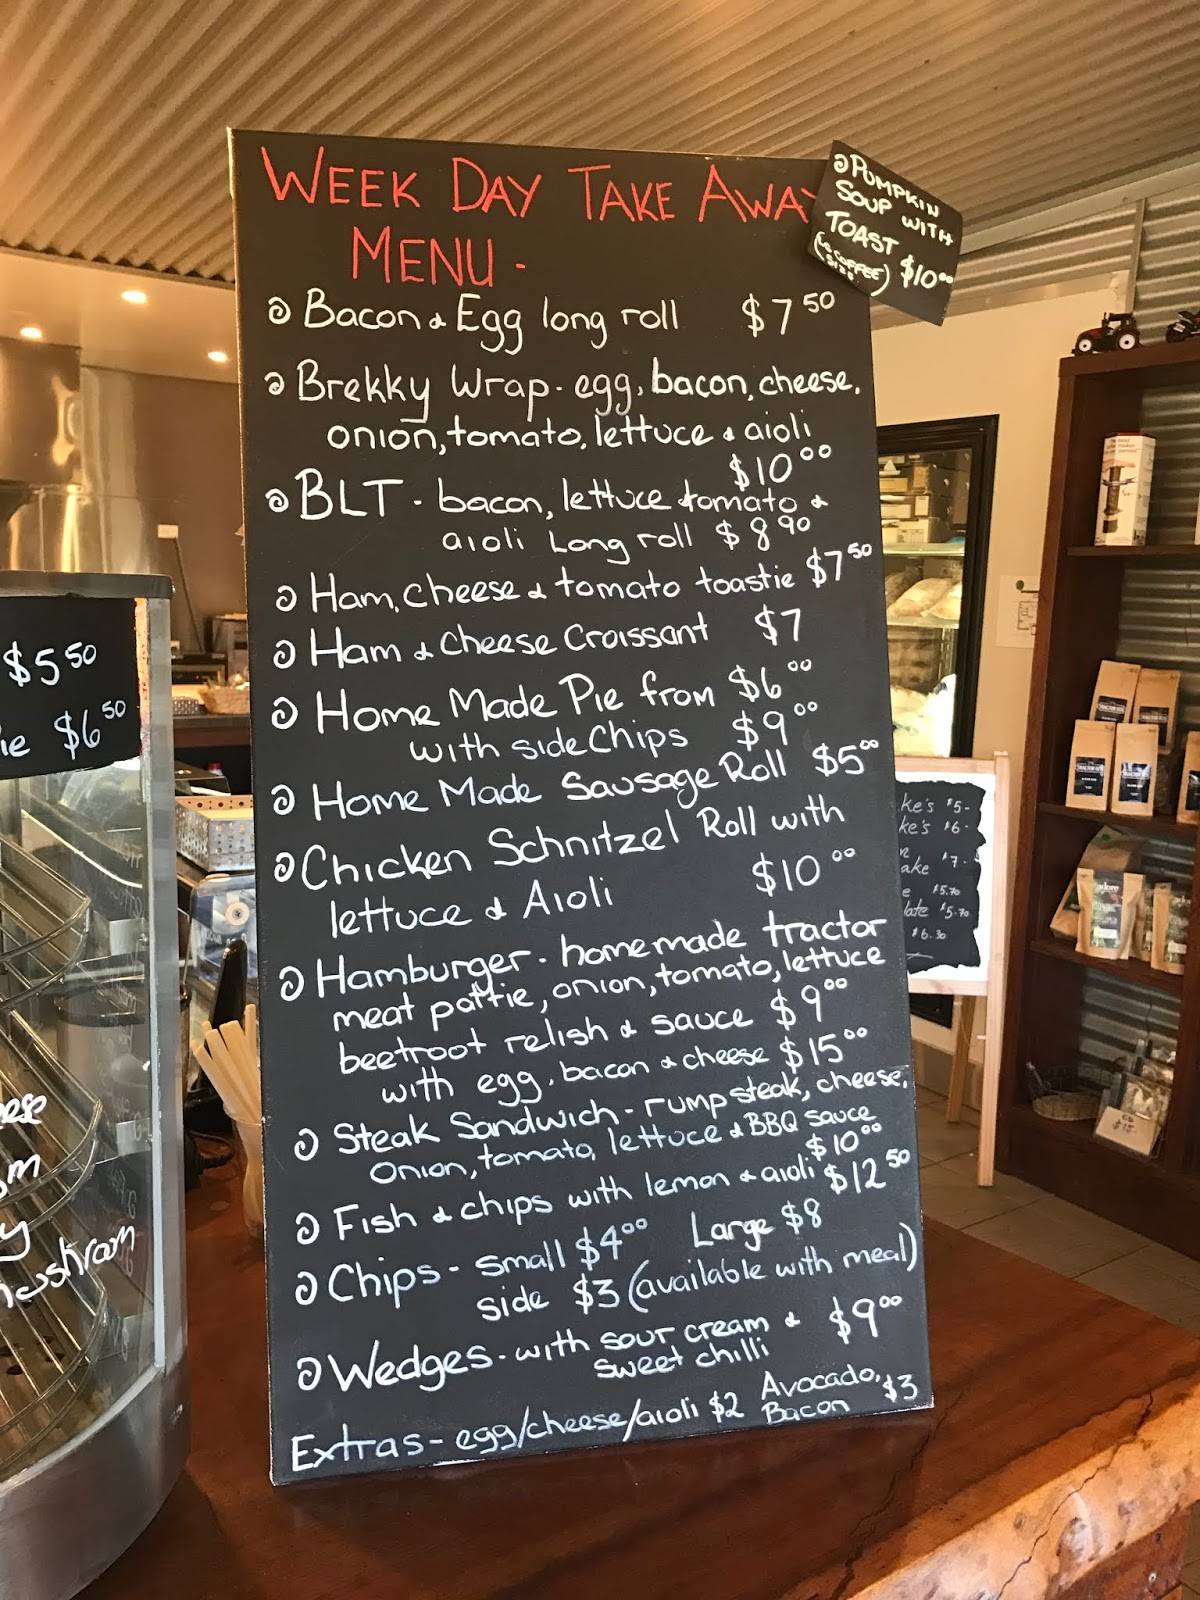 WEEK DAY TAKE AWAY
MENU -
Bacon & Egg long roll $7 50
Brekky Wrap - egg, bacon, cheese,
onion, tomato, lettuce & aioli
$10 00
BLT - bacon, lettuce & tomato &
aioli Long roll $8 90
Ham, cheese & tomato toastie $7 50
Ham & Cheese Croissant $7
Home Made Pie from $6 00
with side Chips $9 00
Home Made Sausage Roll $5 00
Chicken Schnitzel Roll with
lettuce & Aioli $10 00
Hamburger - homemade tractor
meat pattie, onion, tomato, lettuce
beetroot relish & sauce $9 00
with egg, bacon & cheese $15 00
Steak Sandwich - rump steak, cheese,
onion, tomato, lettuce & BBQ sauce
$10 00
Fish & chips with lemon & aioli $12 50
Chips - small $4 00 Large $8
side $3 (available with meal)
Wedges - with sour cream & $9 00
sweet chilli
Extras - egg/cheese/aioli $2 Avocado, $3
Bacon
PUMPKIN
SOUP WITH
TOAST
$10 00
$5 50
ie $6 50
ke's $5-
ke's $6-
ake $7-
e $5.70
late $5.70
$6.30